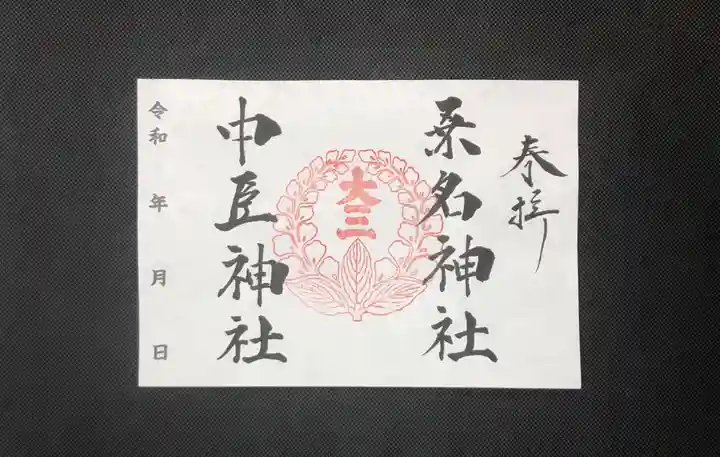 奉拝
桑名神社
大三
中臣神社
令和 年 月 日